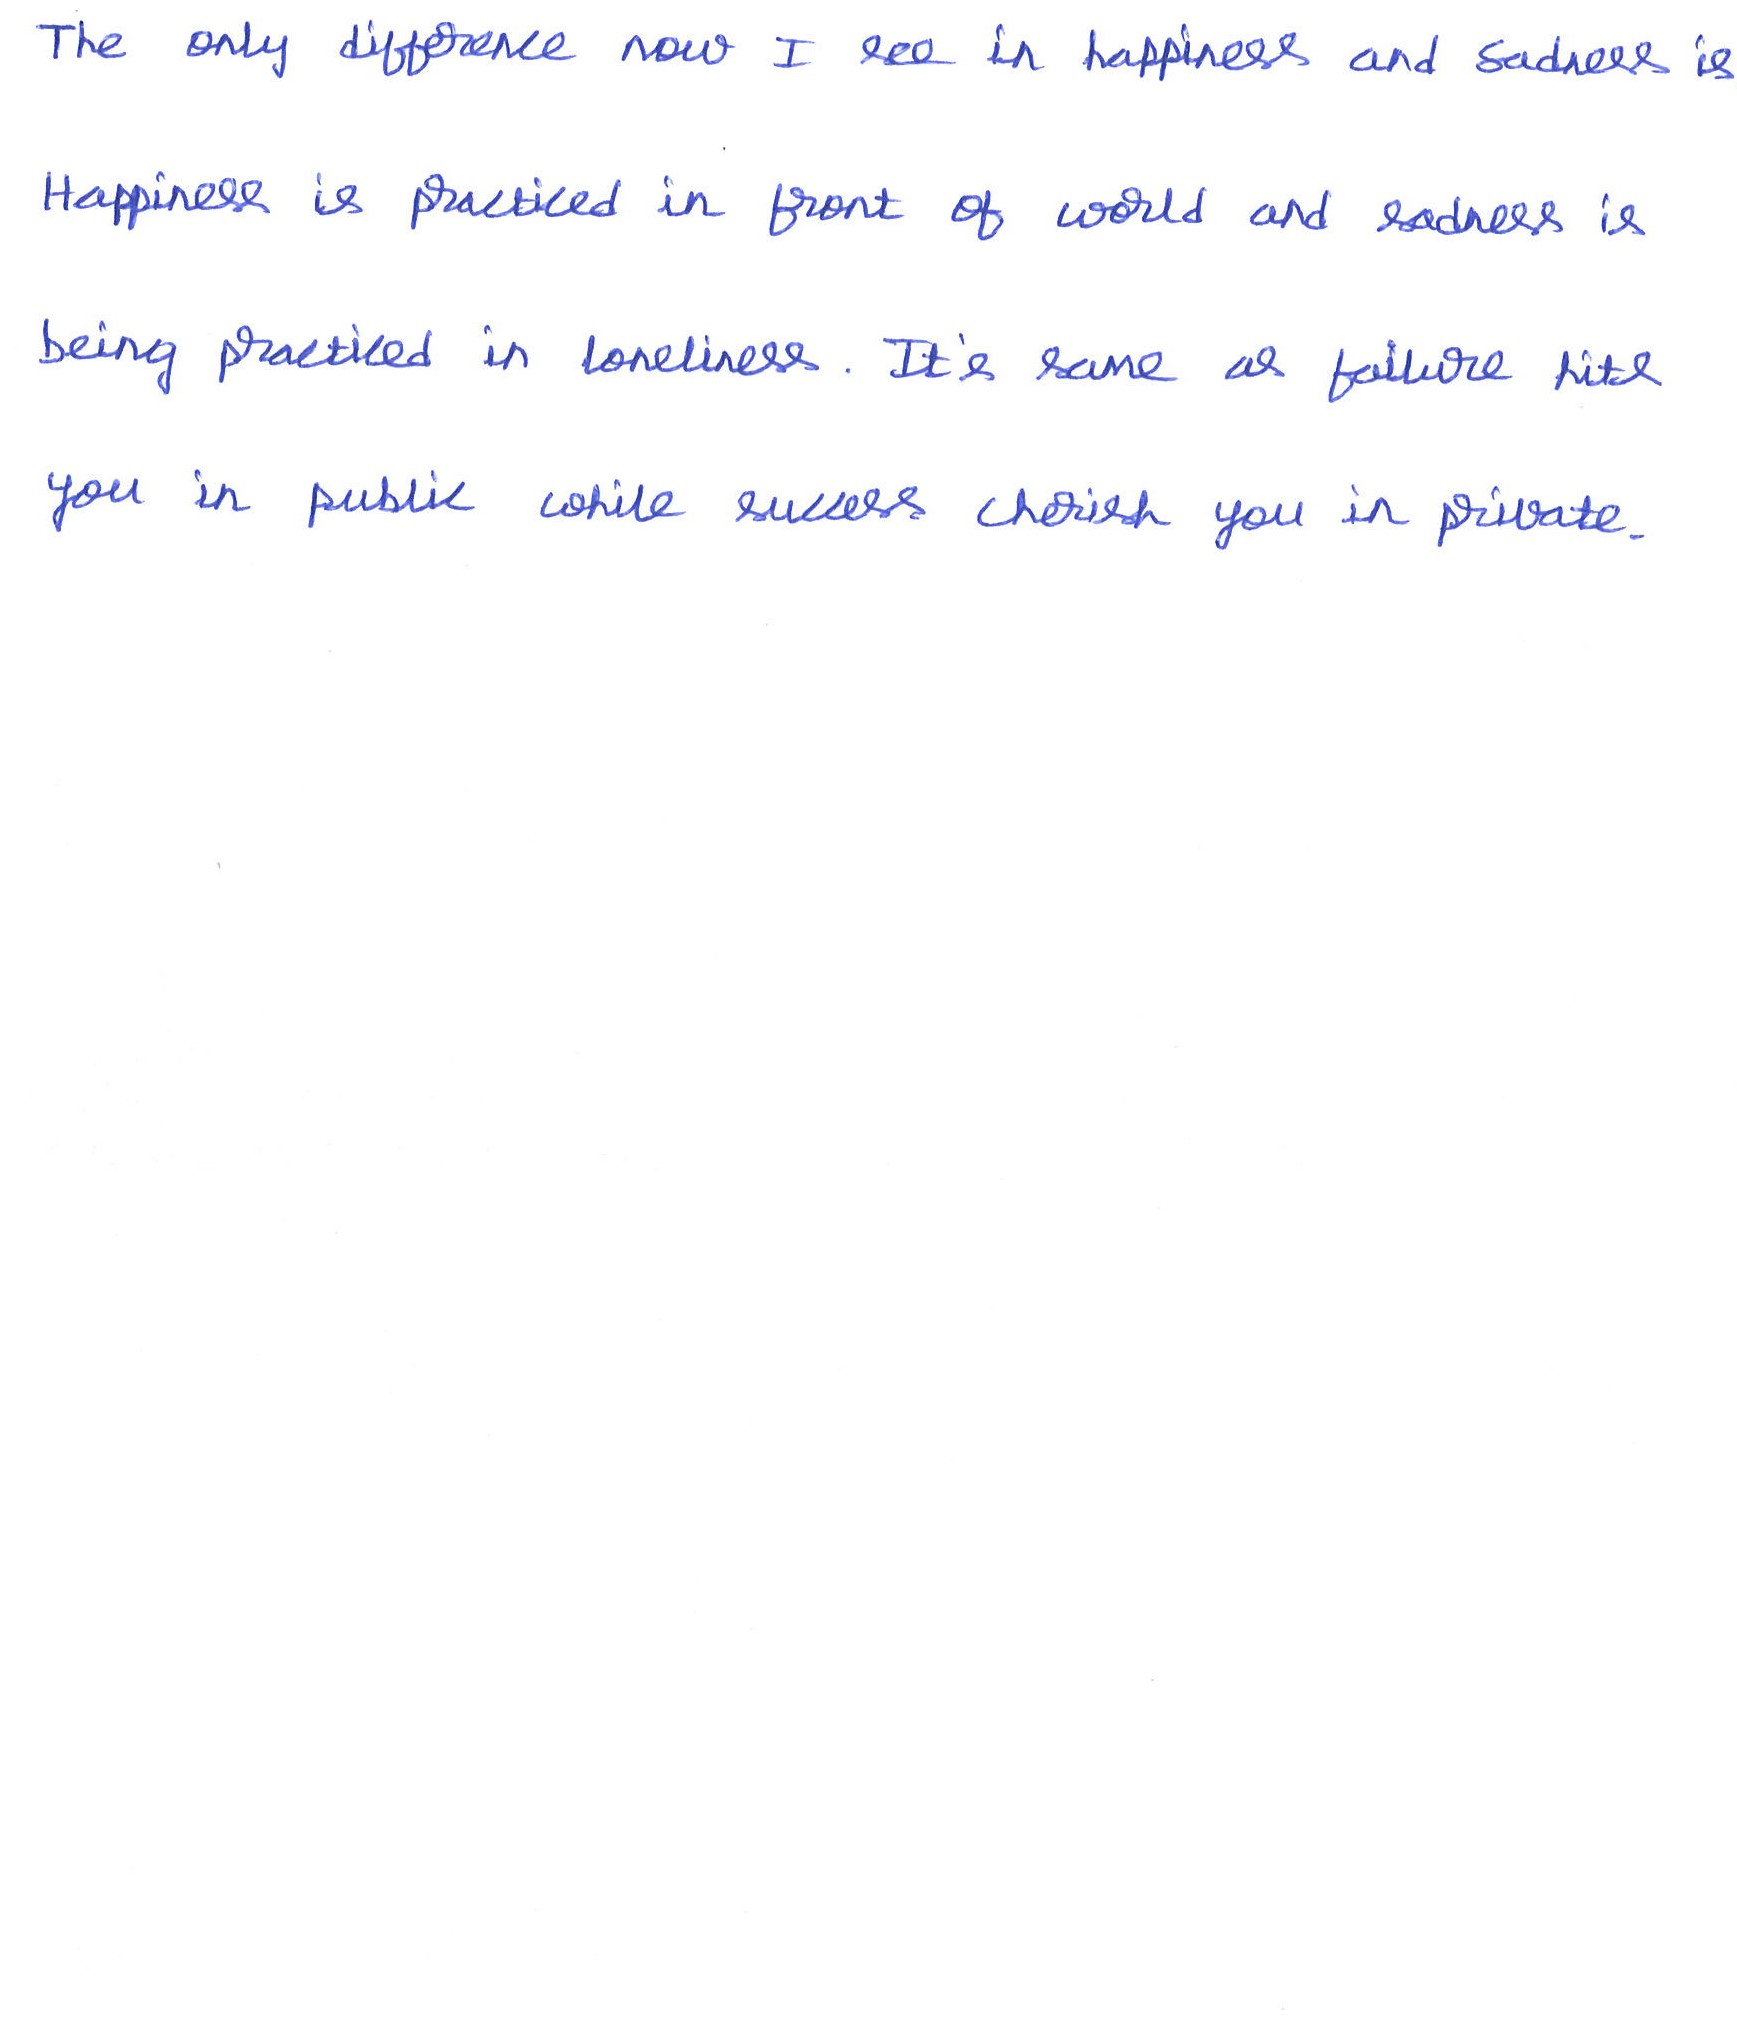 The only difference now I see in happiness and sadness is
Happiness is practiced in front of world and sadness is
being practiced in loneliness. It's same as failure hits
you in public while success cherish you in private.